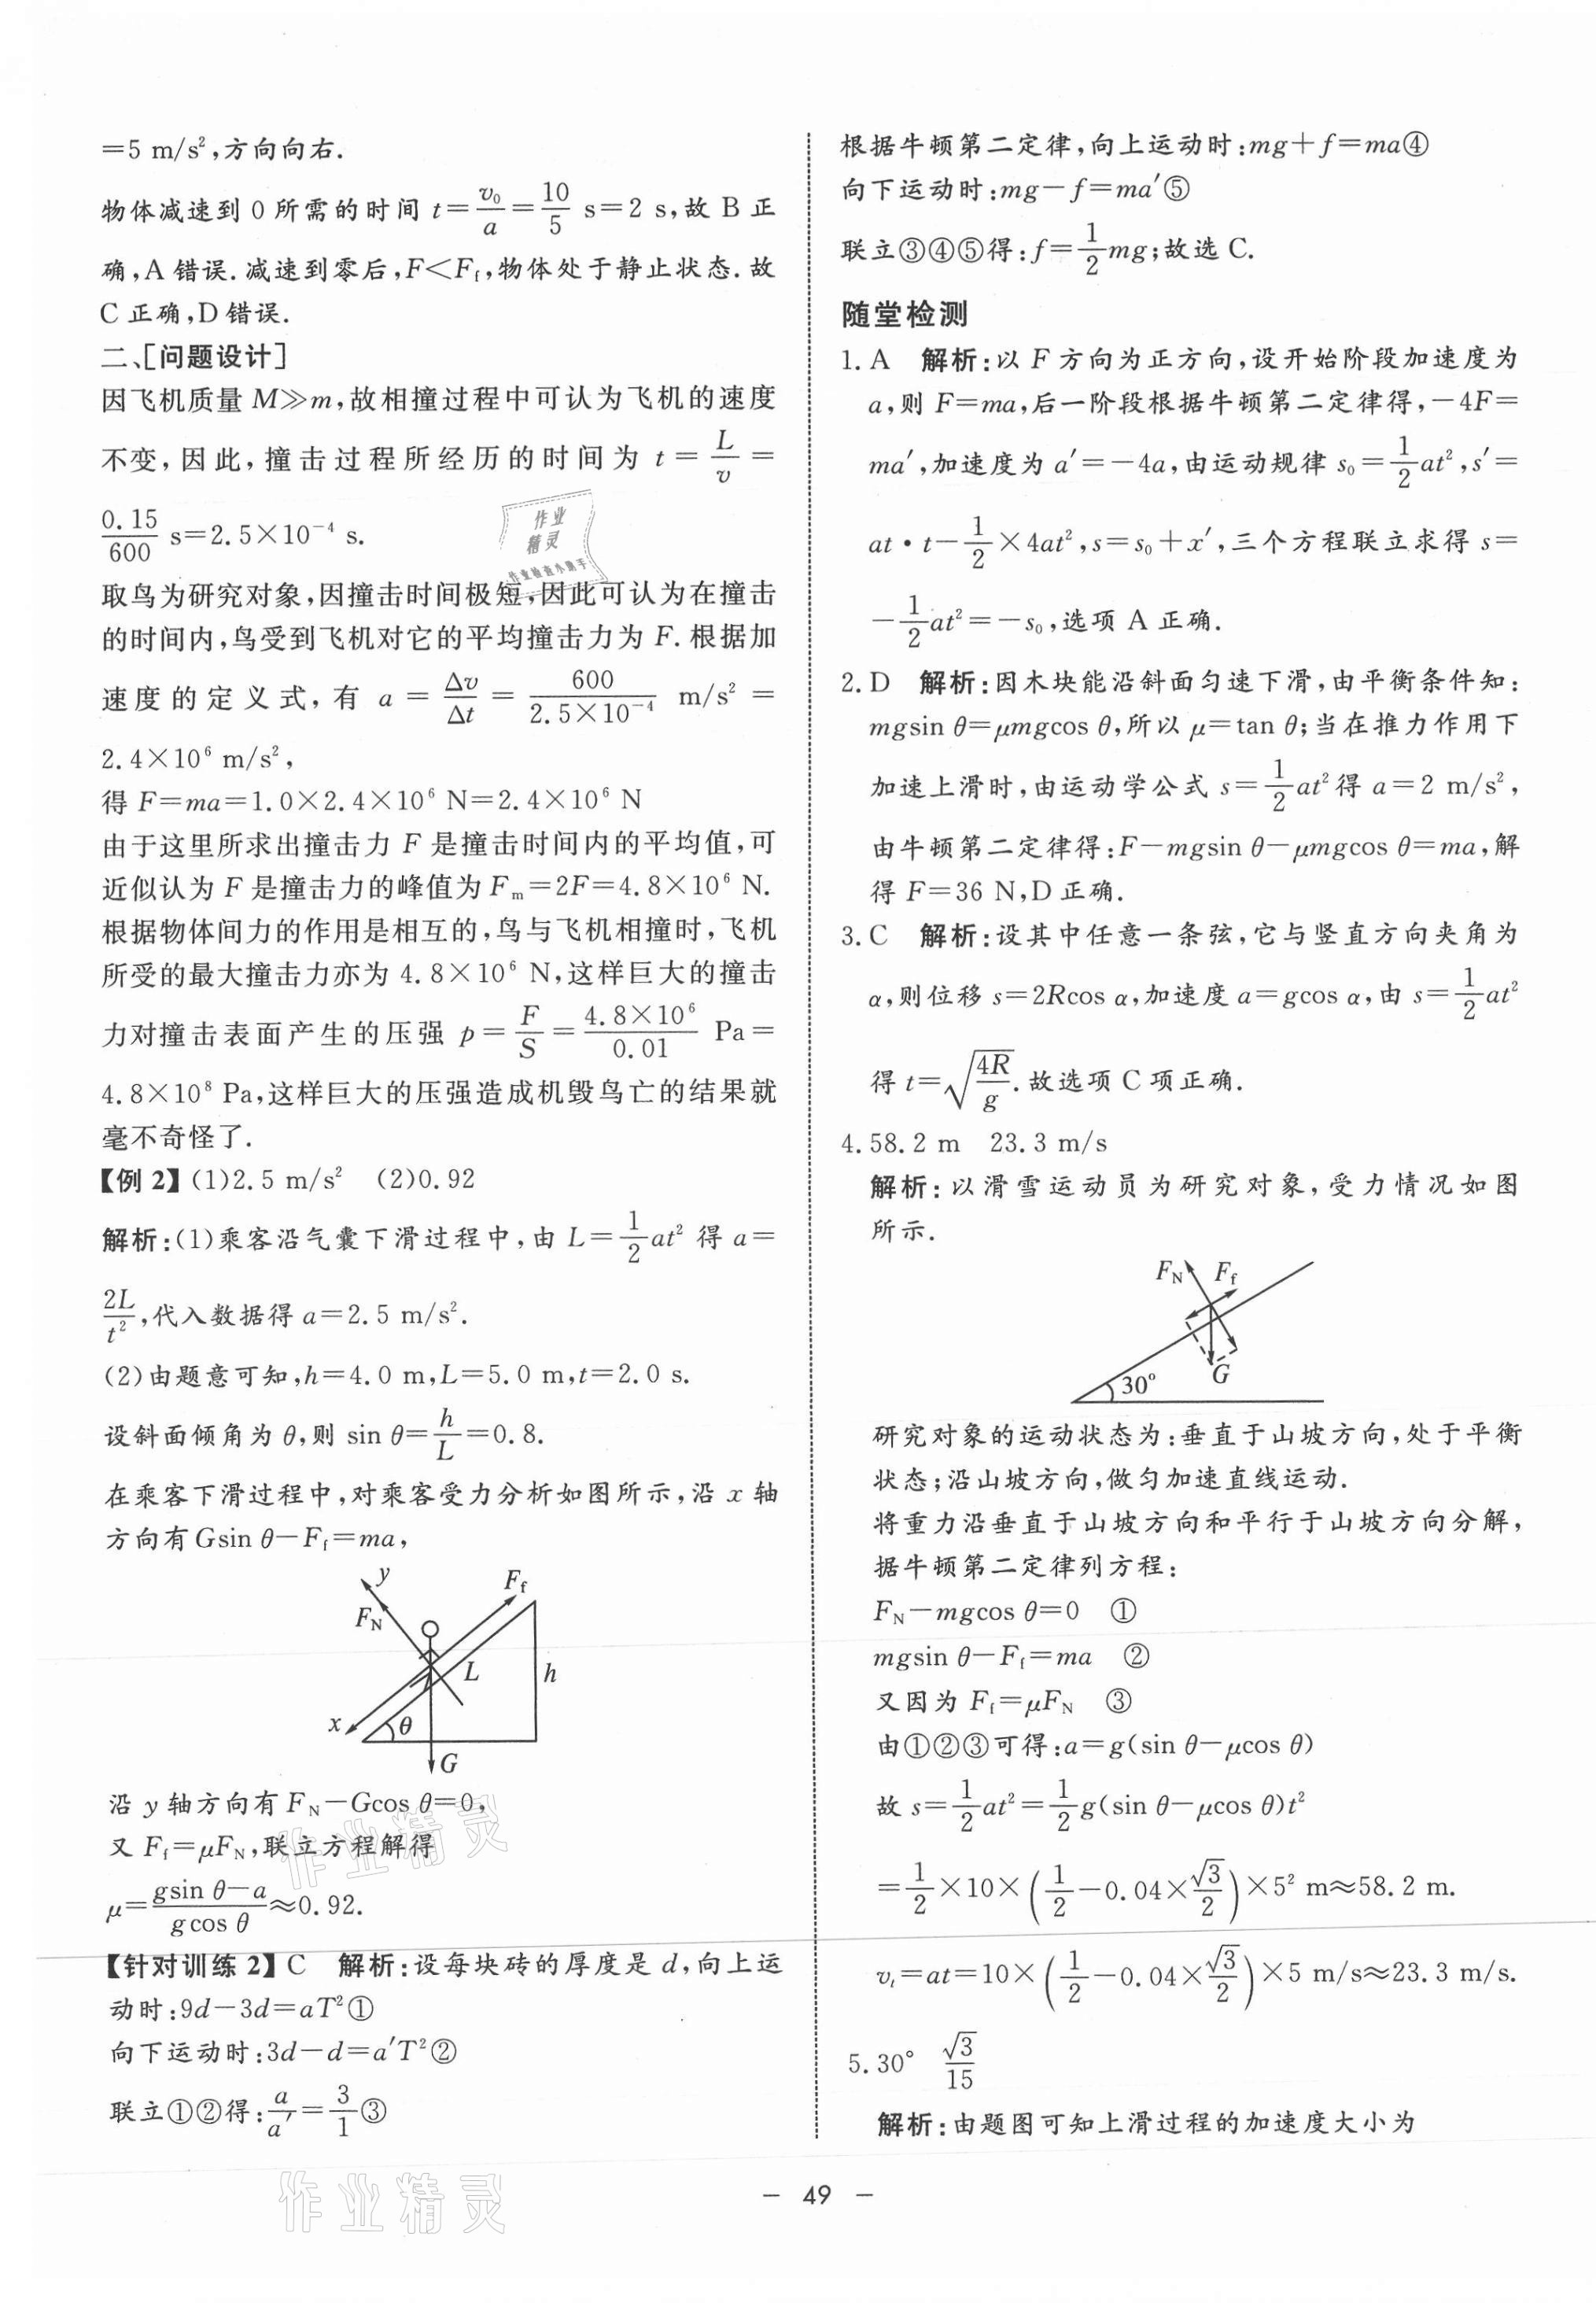 =5 m/s²,方向向右.
物体减速到 0 所需的时间 t=v₀/a=10/5 s=2 s,故 B 正
确,A 错误.减速到零后,F<Ff,物体处于静止状态.故
C 正确,D 错误.
二、[问题设计]
因飞机质量 M≫m,故相撞过程中可认为飞机的速度
不变,因此,撞击过程所经历的时间为 t=L/v=
0.15/600 s=2.5×10⁻⁴ s.
取鸟为研究对象,因撞击时间极短,因此可认为在撞击
的时间内,鸟受到飞机对它的平均撞击力为 F.根据加
速度的定义式,有 a=Δv/Δt=600/(2.5×10⁻⁴) m/s²=
2.4×10⁶ m/s²,
得 F=ma=1.0×2.4×10⁶ N=2.4×10⁶ N
由于这里所求出撞击力 F 是撞击时间内的平均值,可
近似认为 F 是撞击力的峰值为 Fm=2F=4.8×10⁶ N.
根据物体间力的作用是相互的,鸟与飞机相撞时,飞机
所受的最大撞击力亦为 4.8×10⁶ N,这样巨大的撞击
力对撞击表面产生的压强 p=F/S=(4.8×10⁶)/0.01 Pa=
4.8×10⁸ Pa,这样巨大的压强造成机毁鸟亡的结果就
毫不奇怪了.
【例 2】(1)2.5 m/s² (2)0.92
解析:(1)乘客沿气囊下滑过程中,由 L=1/2 at² 得 a=
2L/t²,代入数据得 a=2.5 m/s².
(2)由题意可知,h=4.0 m,L=5.0 m,t=2.0 s.
设斜面倾角为 θ,则 sin θ=h/L=0.8.
在乘客下滑过程中,对乘客受力分析如图所示,沿 x 轴
方向有Gsin θ-Ff=ma,
y
Ff
FN
L
h
x
θ
G
沿 y 轴方向有 FN-Gcos θ=0,
又 Ff=μFN,联立方程解得
μ=(gsin θ-a)/(gcos θ)≈0.92.
【针对训练 2】C 解析:设每块砖的厚度是 d,向上运
动时:9d-3d=aT²①
向下运动时:3d-d=a′T²②
联立①②得:a/a′=3/1③
根据牛顿第二定律,向上运动时:mg+f=ma④
向下运动时:mg-f=ma′⑤
联立③④⑤得:f=1/2 mg;故选 C.
随堂检测
1.A 解析:以 F 方向为正方向,设开始阶段加速度为
a,则 F=ma,后一阶段根据牛顿第二定律得,-4F=
ma′,加速度为 a′=-4a,由运动规律 s₀=1/2 at²,s′=
at·t-1/2×4at²,s=s₀+x′,三个方程联立求得 s=
-1/2 at²=-s₀,选项 A 正确.
2.D 解析:因木块能沿斜面匀速下滑,由平衡条件知:
mgsin θ=μmgcos θ,所以 μ=tan θ;当在推力作用下
加速上滑时,由运动学公式 s=1/2 at² 得 a=2 m/s²,
由牛顿第二定律得:F-mgsin θ-μmgcos θ=ma,解
得 F=36 N,D 正确.
3.C 解析:设其中任意一条弦,它与竖直方向夹角为
α,则位移 s=2Rcos α,加速度 a=gcos α,由 s=1/2 at²
得 t=√(4R/g).故选项 C 项正确.
4.58.2 m 23.3 m/s
解析:以滑雪运动员为研究对象,受力情况如图
所示.
FN Ff
G
30°
研究对象的运动状态为:垂直于山坡方向,处于平衡
状态;沿山坡方向,做匀加速直线运动.
将重力沿垂直于山坡方向和平行于山坡方向分解,
据牛顿第二定律列方程:
FN-mgcos θ=0 ①
mgsin θ-Ff=ma ②
又因为 Ff=μFN ③
由①②③可得:a=g(sin θ-μcos θ)
故 s=1/2 at²=1/2 g(sin θ-μcos θ)t²
=1/2×10×(1/2-0.04×√3/2)×5² m≈58.2 m.
vt=at=10×(1/2-0.04×√3/2)×5 m/s≈23.3 m/s.
5.30° √3/15
解析:由题图可知上滑过程的加速度大小为
- 49 -
作业
精灵
作业检查小助手
作业精灵
作业精灵